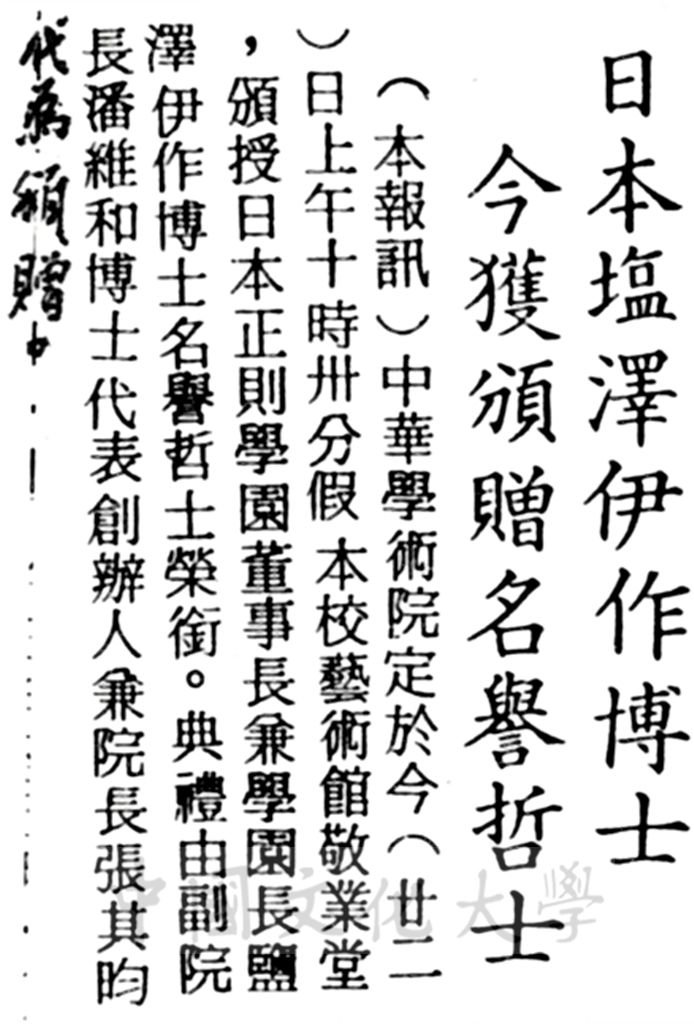 日本塩澤伊作博士
今獲頒贈名譽哲士
（本報訊）中華學術院定於今（廿二
）日上午十時卅分假本校藝術館敬業堂
，頒授日本正則學園董事長兼學園長鹽
澤伊作博士名譽哲士榮銜。典禮由副院
長潘維和博士代表創辦人兼院長張其昀
代為頒贈
中國文化大學